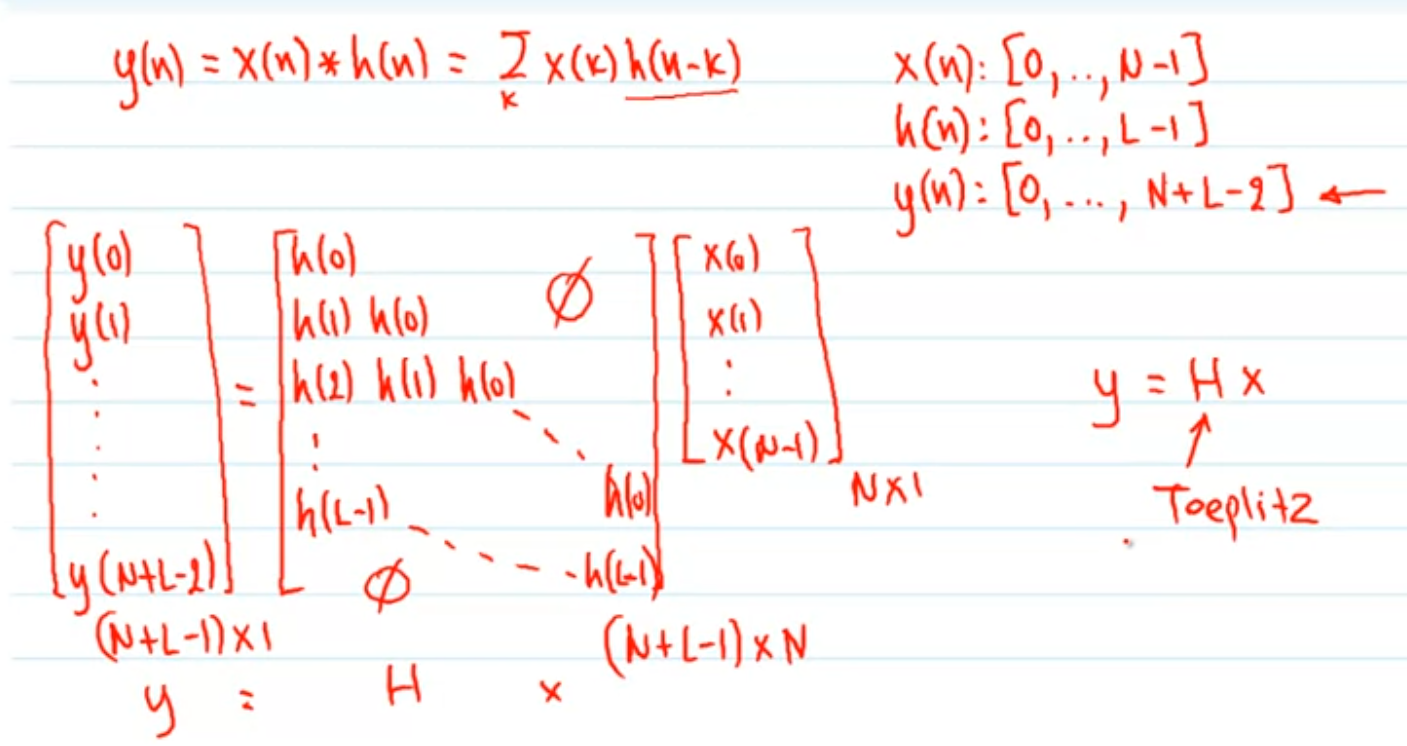 y(n) = x(n) * h(n) = Σ x(k) h(n-k)
k
x(n): [0, .., N-1]
h(n): [0, .., L-1]
y(n): [0, ..., N+L-2] ←
y(0)
y(1)
⋮
y(N+L-2)
(N+L-1) x 1
=
h(0) ∅
h(1) h(0)
h(2) h(1) h(0)
⋮ h(0)
h(L-1) - - - h(L-1)
∅
(N+L-1) x N
x(0)
x(1)
⋮
x(N-1)
N x 1
y = H x
y = H x
↑
Toeplitz